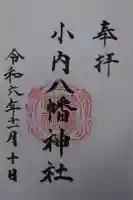 奉拝
小内八幡神社
令和六年十二月十日